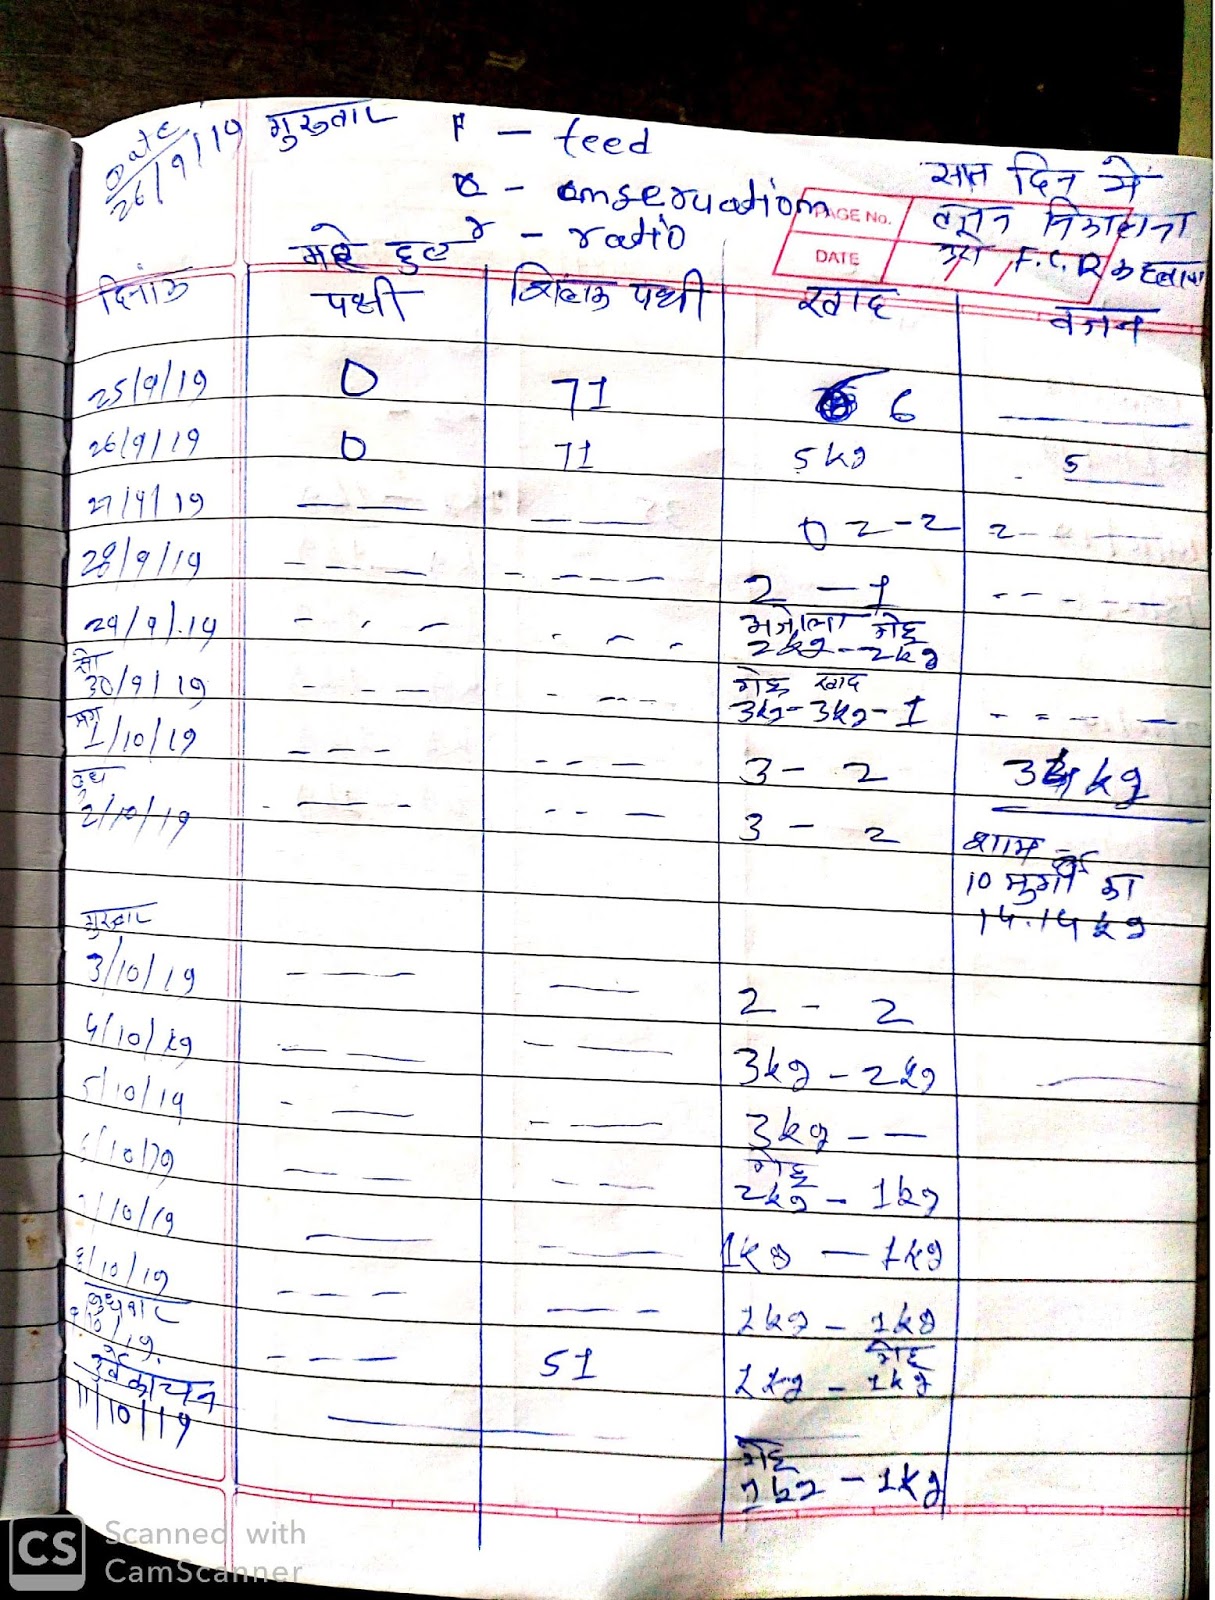 Date
26/9/19 गुरुवार F - feed
- ratio
सात दिन में
PAGE No.
DATE
F.C.R
मरे हुए
दिनांक पक्षी पक्षी खाद वजन
25/9/19 0 71 6
26/9/19 0 71 5kg 5
27/9/19 — — — — 0 2-2 2- - - -
28/9/19 - - - - - - - - 2 - 1 - - - - -
गेहू
29/9/19 - - - - - - 2kg - 2kg
सो गेहू खाद
30/9/19 - - - - - - 3kg - 3kg - 1 - - - -
मंग
1/10/19 - - - - - - 3 - 2 kg
बुध
2/10/19 - - - - - - 3 - 2 शाम
10 मुर्गी का
14.14 kg
गुरुवार
3/10/19 - - - — 2 - 2
4/10/19 — — — — 3kg - 2kg
5/10/19 - — - — 3kg - —
गेहू
/10/19 — — — — 2kg - 1kg
/10/19 — - — 1kg — 1kg
8/10/19 - - - — - 2kg - 1kg
बुधवार गेहू
/10/19 - - - 51 - 1kg
11/10/19
गेहू
- 1kg
CS Scanned with
CamScanner